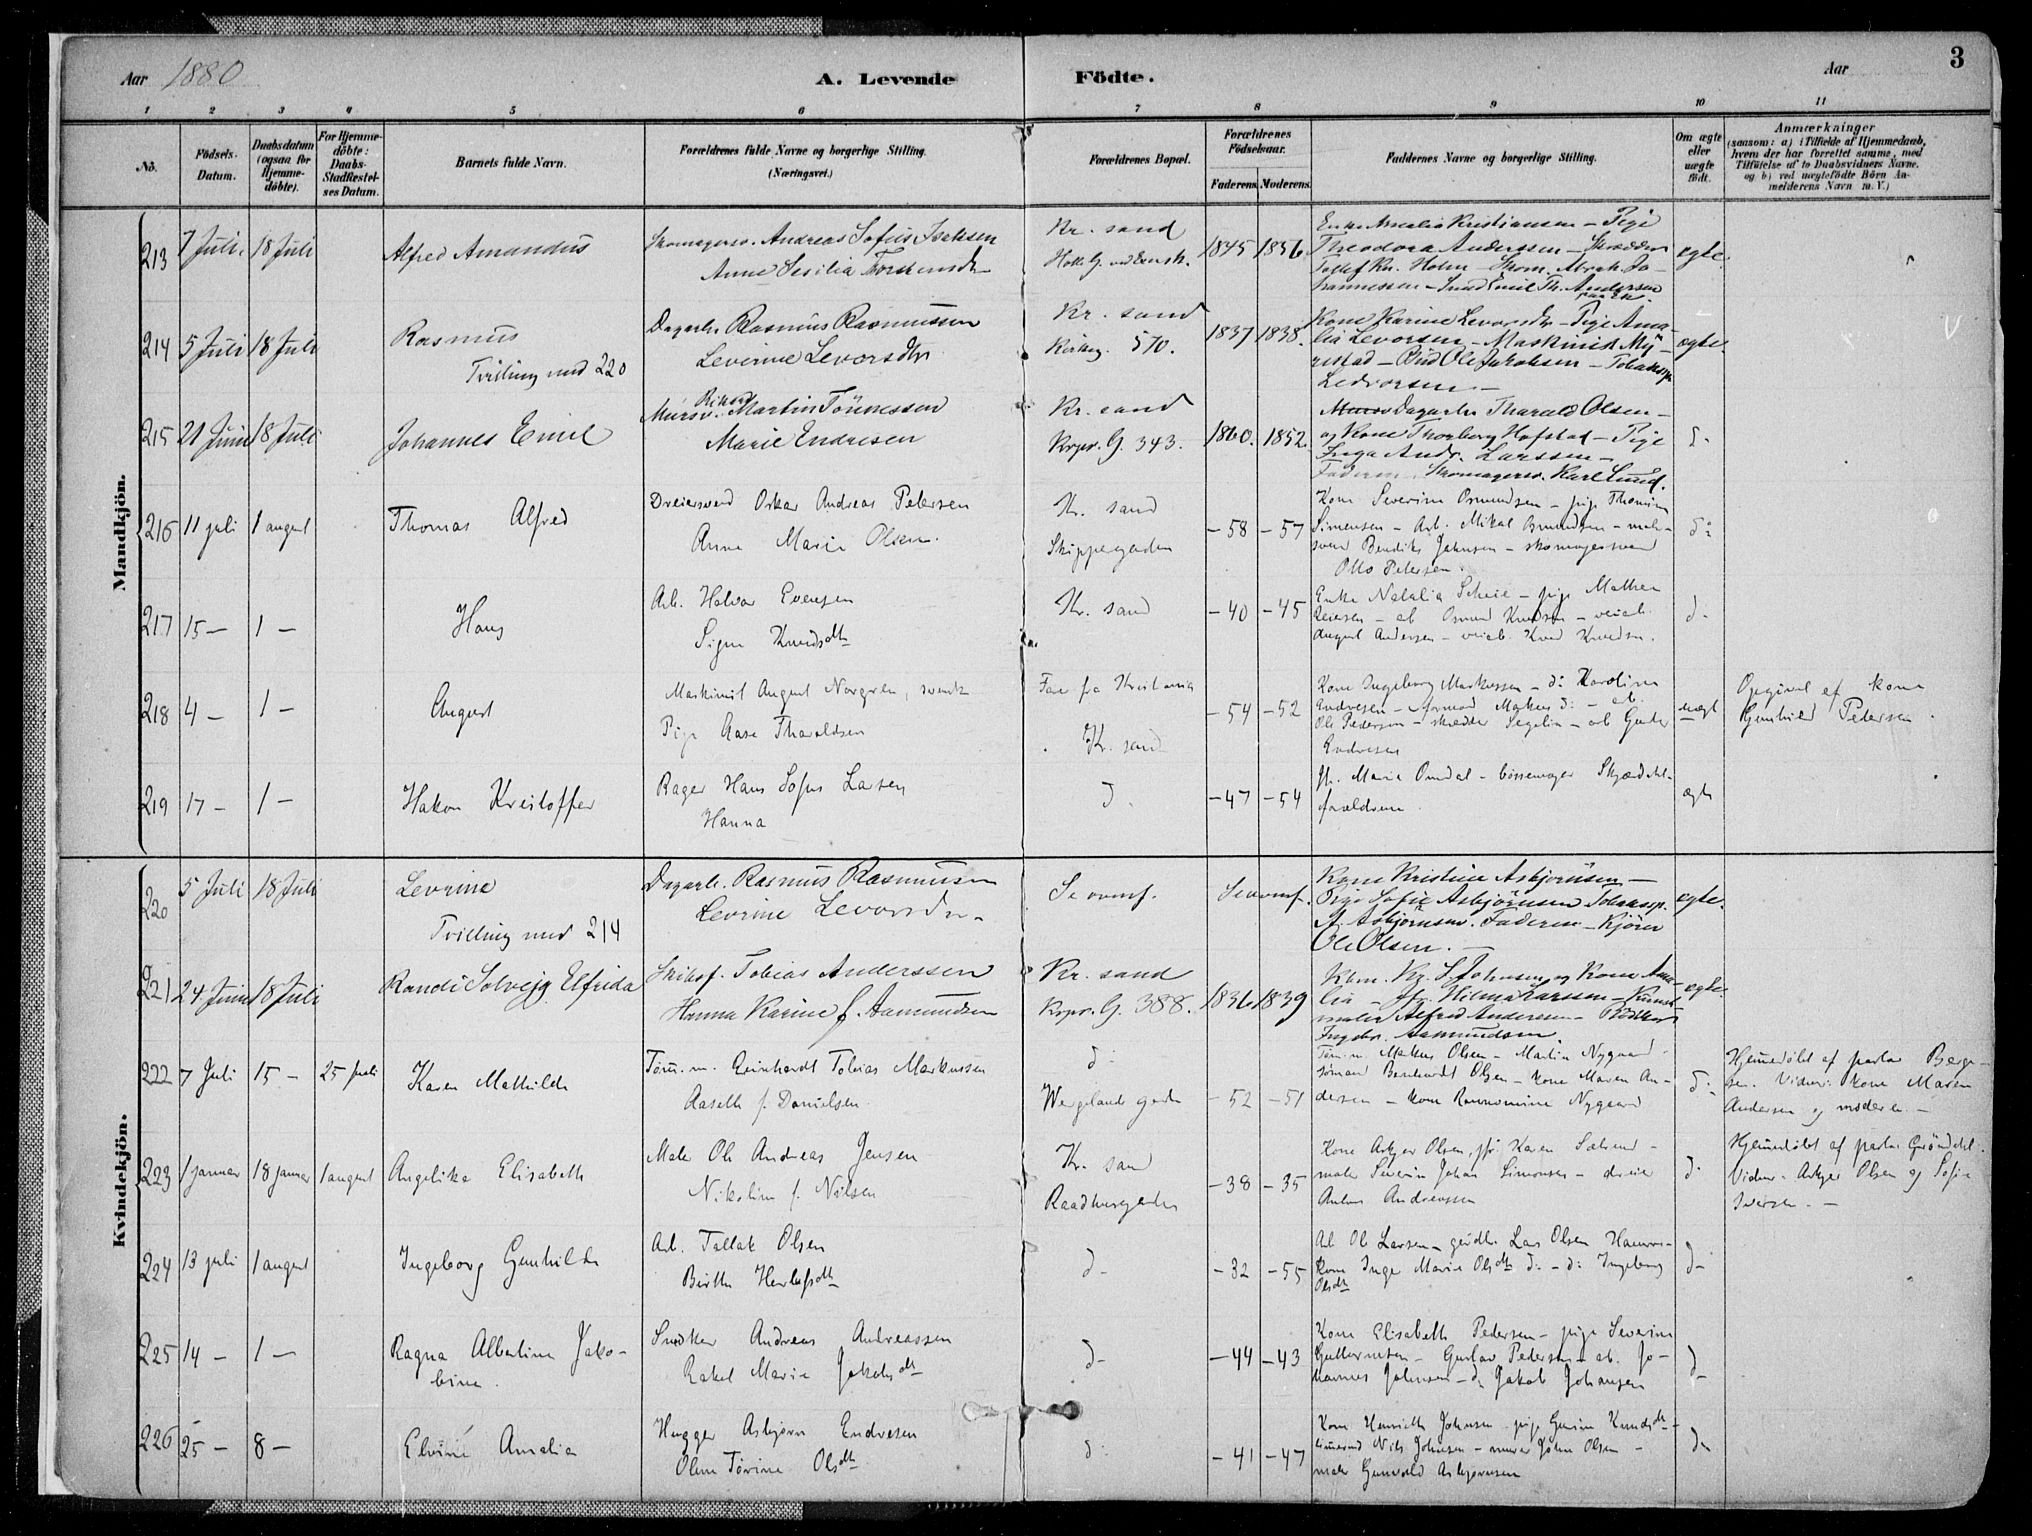 3
Aar 1880
A. Levende
Födte.
Aar
1 2 3 4 5 6 7 8 9 10 11
No.
Födsels-Datum.
Daabsdatum (ogsaa for Hjemme-döbte).
For Hjemme-döbte: Daabs-Stadfæstel-ses Datum.
Barnets fulde Navn.
Forældrenes fulde Navne og borgerlige Stilling.
(Næringsvei.)
Forældrenes Bopæl.
Forældrenes Födselsaar.
Faderens. Moderens.
Faddernes Navne og borgerlige Stilling.
Om ægte eller uægte födt.
Anmærkninger
(saasom: a) i Tilfælde af Hjemmedaab,
hvem der har forrettet samme, med
Tilföielse af to Daabsvidners Navne.
og b) ved uægtefödte Börn An-
melderens Navn m. V.)
Mandkjön.
213 7 Juli 18 Juli Alfred Amandus
Skomagersv. Andreas Sofus Isaksen
Anne Sesilia
Kr. sand
1845 1856
Enke Amalia Kristiansen – Pige
Theodora Anderssen – Skrædder
Tallef Kr. Holm – Skom. Abrah. Jo-
hannessen – Emil Th. Andersen
egte.
214 5 Juli 18 Juli Rasmus
Tvilling med 220
Dagarb. Rasmus Rasmussen
Leverine Levorsdtr
Kr. sand
570.
1837 1838.
Kone Karine Levorsdtr – Pige Ama-
lia Levorsen – Maskinist My-
restad – Bud Ole Jakobsen – Tobaksp.
Ledvorsen –
egte.
215 21 Juni 18 Juli Johannes Emil
Mursv. Rikard Martin Tönnessen
Marie Endresen
Kr. sand
Krpr. G. 343.
1860. 1852.
Dagarb. Tharald Olsen –
og Kone Thorborg Hofstad – Pige
Inga Andr. Larssen –
Faderen. Skomagersv. Karl Lund.
d-
216 11 juli 1 august Thomas Alfred
Dreiersvend Oskar Andreas Petersen
Anne Marie Olsen.
Kr. sand
Skippergaden
-58 -57
Kone Severine Osmundsen – pige Thomine
Simensen – Arb. Mikal Osmundsen – maler-
svend Bendiks Johnsen – skomagersvend
Otto Petersen.
d:
217 15 – 1 – Hans
Arb. Halvor Evensen
Signe Knudsdtr
Kr. sand
-40 -45
Enke Natalia Scheie – pige Mathea
Reiersen – ab Osmund Knudsen – veiarb.
August Andersen – veiab. Knud Knudsen.
d-
218 4 – 1 – August
Maskinist August Norgren, svensk
Pige Aase Tharaldsen
Far fra Kristiania
Kr. sand
-54 -52
Kone Ingeborg Markussen – d: Karoline
Endresen – formand Markus d: – arb.
Ole Pederson – skrædder Segelin – arb
Endresen
uægt
Opgivet af kone
Gunhild Petersen.
219 17 – 1 – Hakon Kristoffer
Bager Hans Sofus Larsen
Hanna
d.
-47 -54
jfr. Marie Omdal – bössemager
forældrene.
ægte
Kvindekjön.
220 5 Juli 18 Juli Levrine
Tvilling med 214
Dagarb. Rasmus Rasmussen
Levrine Levorsdtr –
Se ovenf. Se ovenf.
Kone Kristine Asbjörnsen –
Pige Sofie Asbjörnsen Tobaksp.
A. Asbjörnsen. Faderen – Kjörer
Ole Olsen. –
egte.
221 24 Juni 18 Juli Randi Solvejg Elfrida
Skibsf. Tobias Anderssen
Hanna Karine f. Aamundsen
Kr. sand
Krpr. G. 388.
1836 1839
Kbm. Kr. S. Johnsen og Kone Ama-
lia – jfr. Hilma Larssen – Kunst-
maler Alfred Andersen – Bödker
Ingebr. Aamundsen.
egte.
222 7 Juli 15 – 25 juli Karen Mathilde
Töm. m. Reinhardt Tobias Markussen
Aaseth f. Danielsen.
d:
Wergelands gade
-52 -51
Töm. m. Markus Olsen – Martin Nygaard –
sömand Bernhardt Olsen – kone Maren An-
dersen – kone Nygaard
d:
Hjemedöbt af pastor Berge-
sen. Vidner: kone Maren
Andersen og moderen. –
223 1 januar 18 januar 1 august Angelika Elisabeth
Maler Ole Andreas Jensen
Nikoline f. Nilsen
Kr. sand
Raadhusgaden
-38 -35
Kone Asbjör Olsen, jfr. Karen
maler Severin Johan Simonsen – dreier
Anton Andreassen
d-
Hjemedöbt af pastor Gröndahl.
Vidner: Asbjör Olsen og Sofie
Iversen. –
224 13 juli 1 august Ingeborg Gunhilde
Arb. Tallak Olsen
Birthe Herlufsdtr
d-
-32 -55
Arb Ole Larsen – Lars Olsen
kone Inge Marie Olsdtr d: – d: Ingeborg
Olsdtr
d-
225 14 – 1 – Ragna Albertine Jako-
bine.
Snedker Andreas Andreassen
Rakel Marie Jakobsdtr
d-
-44 -43
Kone Elisabeth Pedersen – pige Severine
Gullormsen – Gustav Pedersen – ab. Jo-
hannes Johnsen – d: Jakob Johansen
d-
226 25 – 8 – Elvine Amalia
Hugger Asbjörn Endresen
Olene Tövine Olsdtr
d:
-41 -47
Kone Henriette Johnsen – pige Gurine Knudsdtr –
Nils Johnsen – murer John Olsen –
maler Gunvald Asbjörnsen
d-